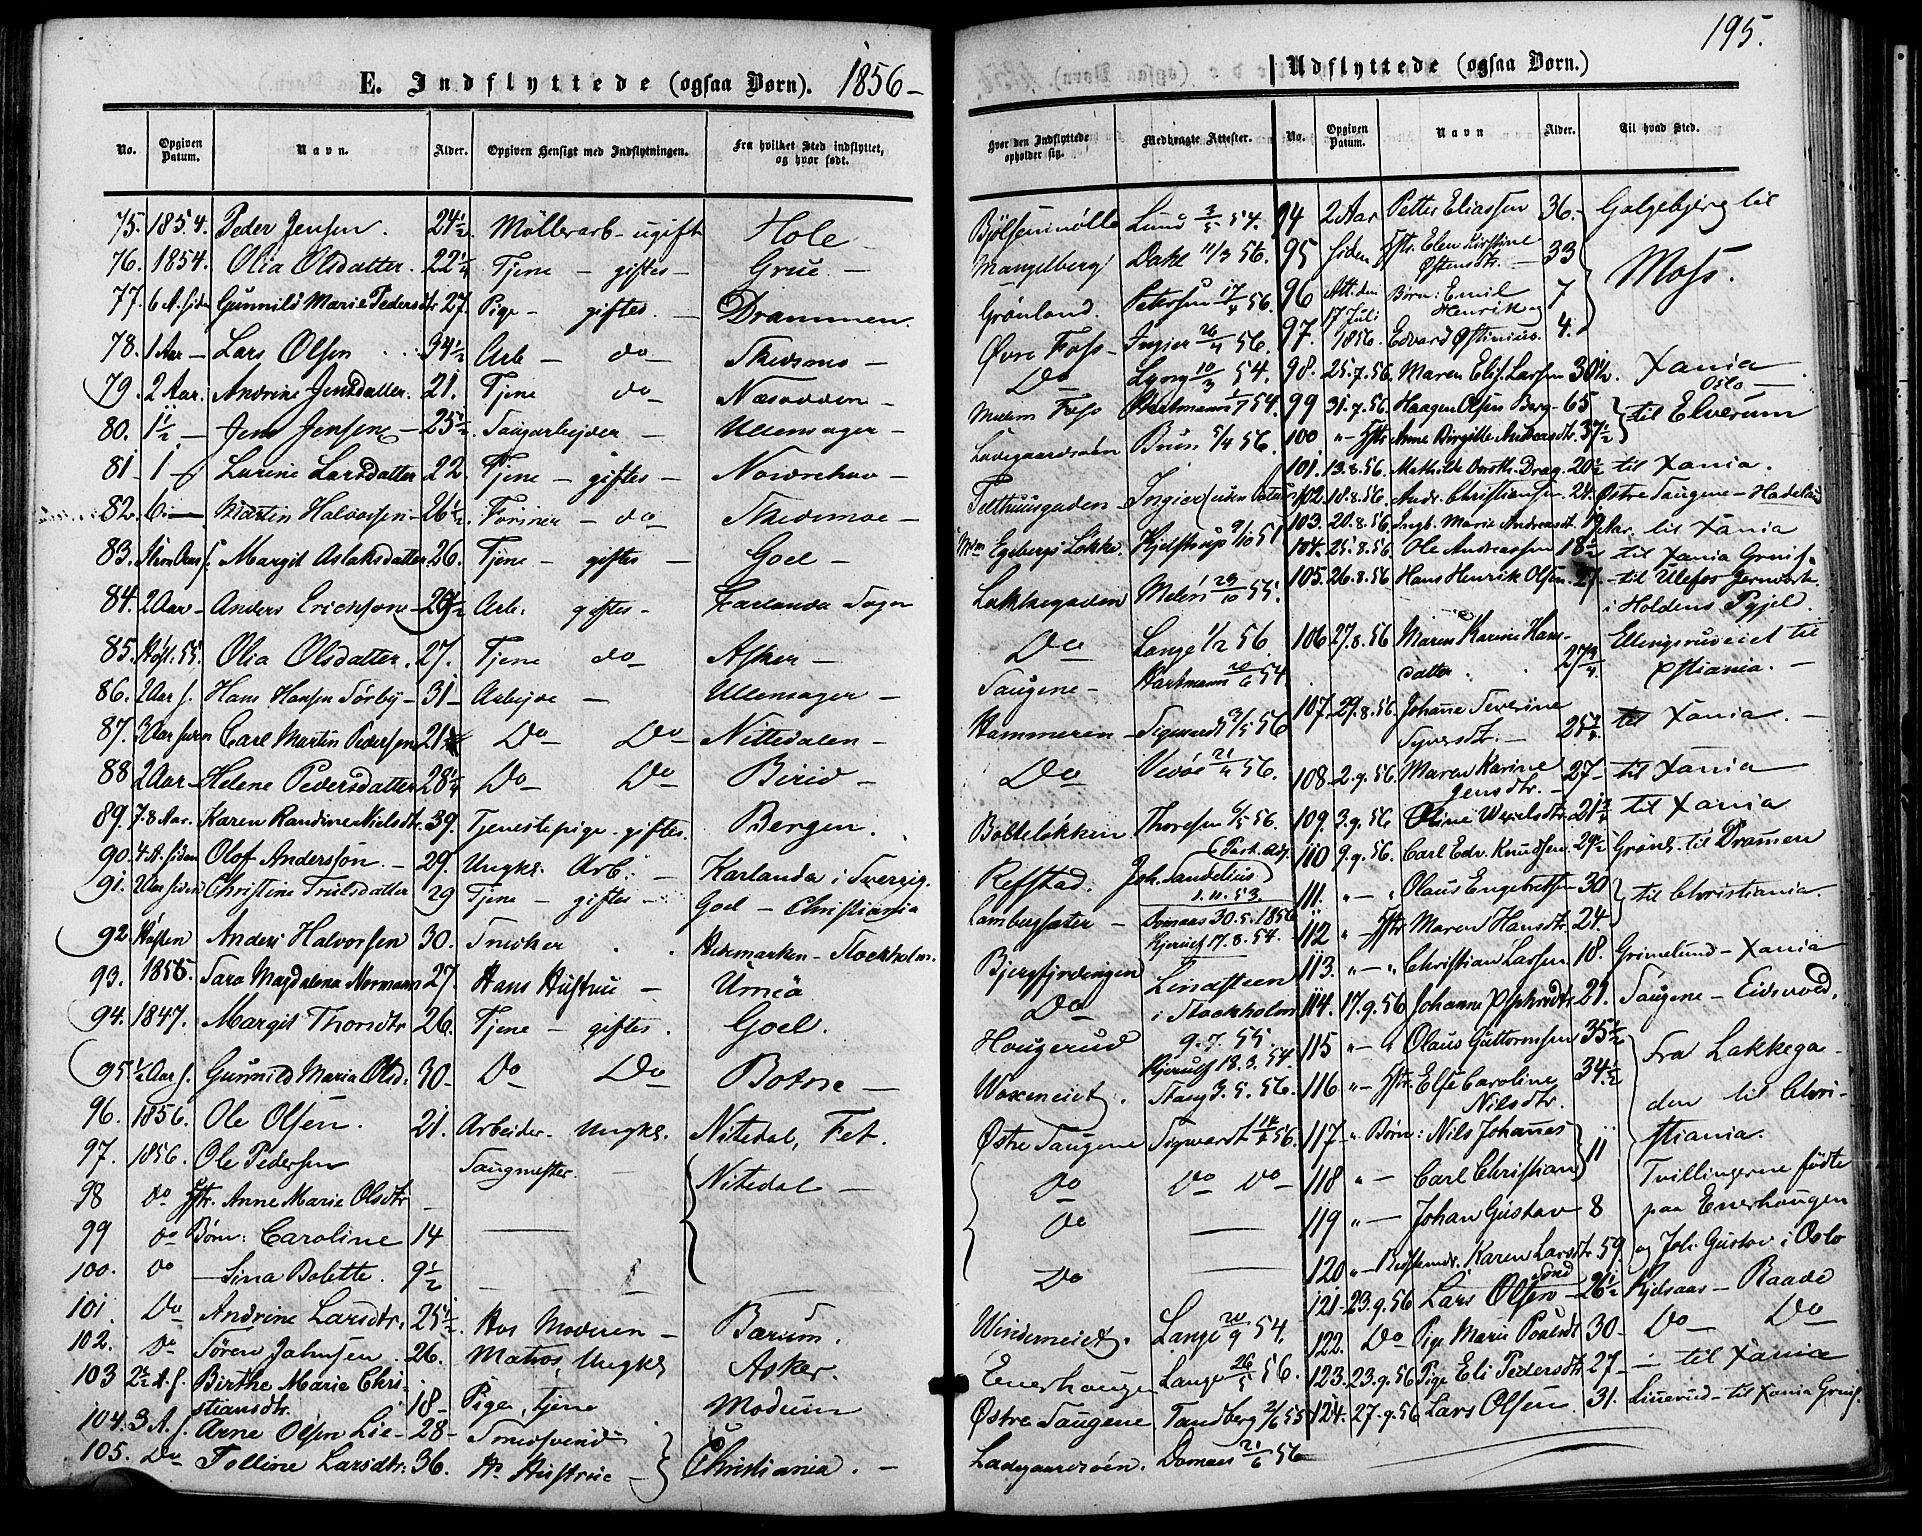 195.
E. Indflyttede (ogsaa Børn). 1856-
No. Opgiven Datum. Navn. Alder. Opgiven Hensigt med Indflytningen. Fra hvilket Sted indflyttet, og hvor født.
75. 1854. Peder Jensen. 24½ Møllerarb- ugift Hole
76. 1854. Olia Olsdatter. 22¼ Tjene - giftes- Grue.
77. 6 A. siden Gunnild Marie Pedersdtr 27. Pige - giftes. Drammen.
78. 1 Aar - Lars Olsen 34½ Arb - do Skedsmo -
79. 2 Aar. Andrine Jensdatter. 21. Tjene do Næsodden -
80. 1½ - Jens Jensen - 25½ Saugarbejder - Ullensager -
81. 1 Lurine Larsdatter 22. Tjene - giftes -
82. 6 - Martin Halvorsen - 26½ Former - do Skedsmoe -
83. Margit Aslaksdatter 26. Tjene - giftes Goel -
84. 2 Aar - Anders Ericksson - Arb. giftes - Karlanda Sogn
85. Høst. 55. Olia Olsdatter. 27. Tjene do Asker -
86. 2 Aar s. Hans Hansen Sørby - 31 - Arbejde - Ullensager -
87. 3 Aar siden Carl Martin Pedersen 21 Do Do Nittedalen -
88 2 Aar - Helene Pedersdatter 28¼ Do Do Birid -
89. 7-8 Aar. Karen Randine Nielsdtr. 39. Tjenestepige. giftes. Bergen.
90. 4 A. siden Olof Andersson. - 29. Ungk. Arb. - Karlanda i Sverrig.
91. 2 Aar siden Christine Trulsdatter 29 Tjene - giftes - Goel - Christiania
92. Høsten Anders Halvorsen 30. Snedker Hedemarken - Stockholm.
93. 1855 Sara Magdalena Normann 27. Hans Hustrue - Umeå
94. 1847. Margit Thorsdtr 26. Tjene - giftes. Goel.
95. ½ Aar s. Gunnild Maria Olsd. 30 - Do Do Botne -
96. 1856. Ole Olsen. 21. Arbeider. Ungk. Nitedal, Fet.
97. 1856. Ole Pedersen Saugmester. Nitedal -
98 do Hstr. Anne Marie Olsdtr
99 do Børn: Caroline 14
100. do - Lina Bolette. 9½
101 Do Andrine Larsdtr. 25½ Hos Moderen - Bærum.
102. Do Søren Johnsen 26. Matros, Ungk. Asker.
103 2½ A. s. Birthe Marie Chri-
stiansdtr. 18 - Pige, tjene Modum
104. 3 A. s. Arne Olsen Lie - 28 - Smedsvend
105. Do Folline Larsdtr. 36. Hs Hustrue - Christiania. -
Udflyttede (ogsaa Børn.)
Hvor den Indflyttede opholder sig. Medbragte Attester. No. Opgiven Datum. Navn Alder. Til hvad Sted.
Bjølsenmølle Lund 3/5 54. 94 2 Aar Petter Eliassen 36. Galgebjerg til
Mangelberg Dahl 11/3 56. 95 siden Hstr. Elen Kirstine
Østensdtr. - 33 Moss.
Grønland. Petersen 17/4 56. 96 Att. den Børn: Emil 7
Henrik og
Øvre Foss - Ingier 26/4 56. 97. 17 Juli 1856. Edvard Østinius. 4.
Do Lyng 10/3 54. 98. 25.7.56. Maren Elis. Larsen 30½. Xania
Oslo -
Hartmann 54. 99 31.7.56. Haagen Olsen Berg - 65 til Elverum
Ladegaardsøen Brun 5/4 56. 100 " - Hstr. Anne Birgitte Andreasdtr. 37½
101. 13.8.56. Mathilde Doroth. Drag. 20½ til Xania.
Telthuusgaden - Ingier 102. 18.8.56. Andr. Christiansen 24. Østre Saugene - Hadeland
103. 20.8.56. Ingb. Marie Andreasdt. 19 Aar. til Xania
Egebergs Løkke. Kjelstrup 9/10 51 104. 25.8.56. Ole Andreassen 18½ til Xania Grnif.
105. 26.8.56. Hans Henrik Olsen. 27. - til Ulefos Jernværk
Lakkegaden 23/10 55. i Holdens Pgjeld.
Do Lange 1/2 56. 106 27.8.56 Maren Karine Hans-
datter. 27¾ Ellingsrudeiet til
Xstiania. -
Saugene - Hartmann 20/6 54.
Hammeren - Sigwardt 3/5 56 107. 29.8.56. Johanne Severine
Syversdtr. - til Xania. -
Do Vedøe 21/4 56. 108. 2.9.56. Maren Karine 27 - til Xania
Jensdtr. -
Bolteløkken Thoresen 6/5 56. 109. 3.9.56 til Xania
110 9.9.56. Carl Edv. Knudsen 29½ Grønl. til Dramen
Refstad. Joh. Sandelius 1.11.53. 111. " - " Olaus Engebretsen 30 til Christiania.
Lambertsæter - Domaas 30.5.1856 112 " - Hstr Maren Hansdtr. 24.
Kjerulf 17.8.54.
Bjergfjerdingen Lindsteen 113. " - " Christian Larsen 18. Grimelund - Xania
Do i Stockholm 114. 17.9.56 Saugene - Eidsvold.
Hougerud 9.7.55. 115 " - " Olaus Guttormsen 35½ Fra Lakkega-
Kjerulf 18.3.54.
Woxeneiet. Stang 3.5.56. 116 " - Hstr. Else Caroline 34½ den til Chri-
Nilsdtr.
Østre Saugene Sigwardt 56. 117 " Børn: Nils Johanes 11 stiania.
Do Do Do 118 " - Carl Christian Tvillingerne fødte
Do 119 " - Johan Gustav 8 paa Enerhougen
120 " - Karen Larsdtr. 59 og Joh. Gustav i Oslo
Do 121 - 23.9.56 Lars Olsen 26½ Kjelsaas - Raade
Windereneiet. Lange 20/9 54. 122. Do Pige Marie Poulsdt 30 - Do Do
Enerhougen Lange 26/5 56. 123. 23.9.56 Pige Eli Pedersdtr. 27 - til Xania
Østre Saugene. Tandberg 2/6 55 124. 27.9.56 Lars Olsen. 31. Linerud - til Xania Grnif.
Ladegaardsøen. Domaas 21/6 56